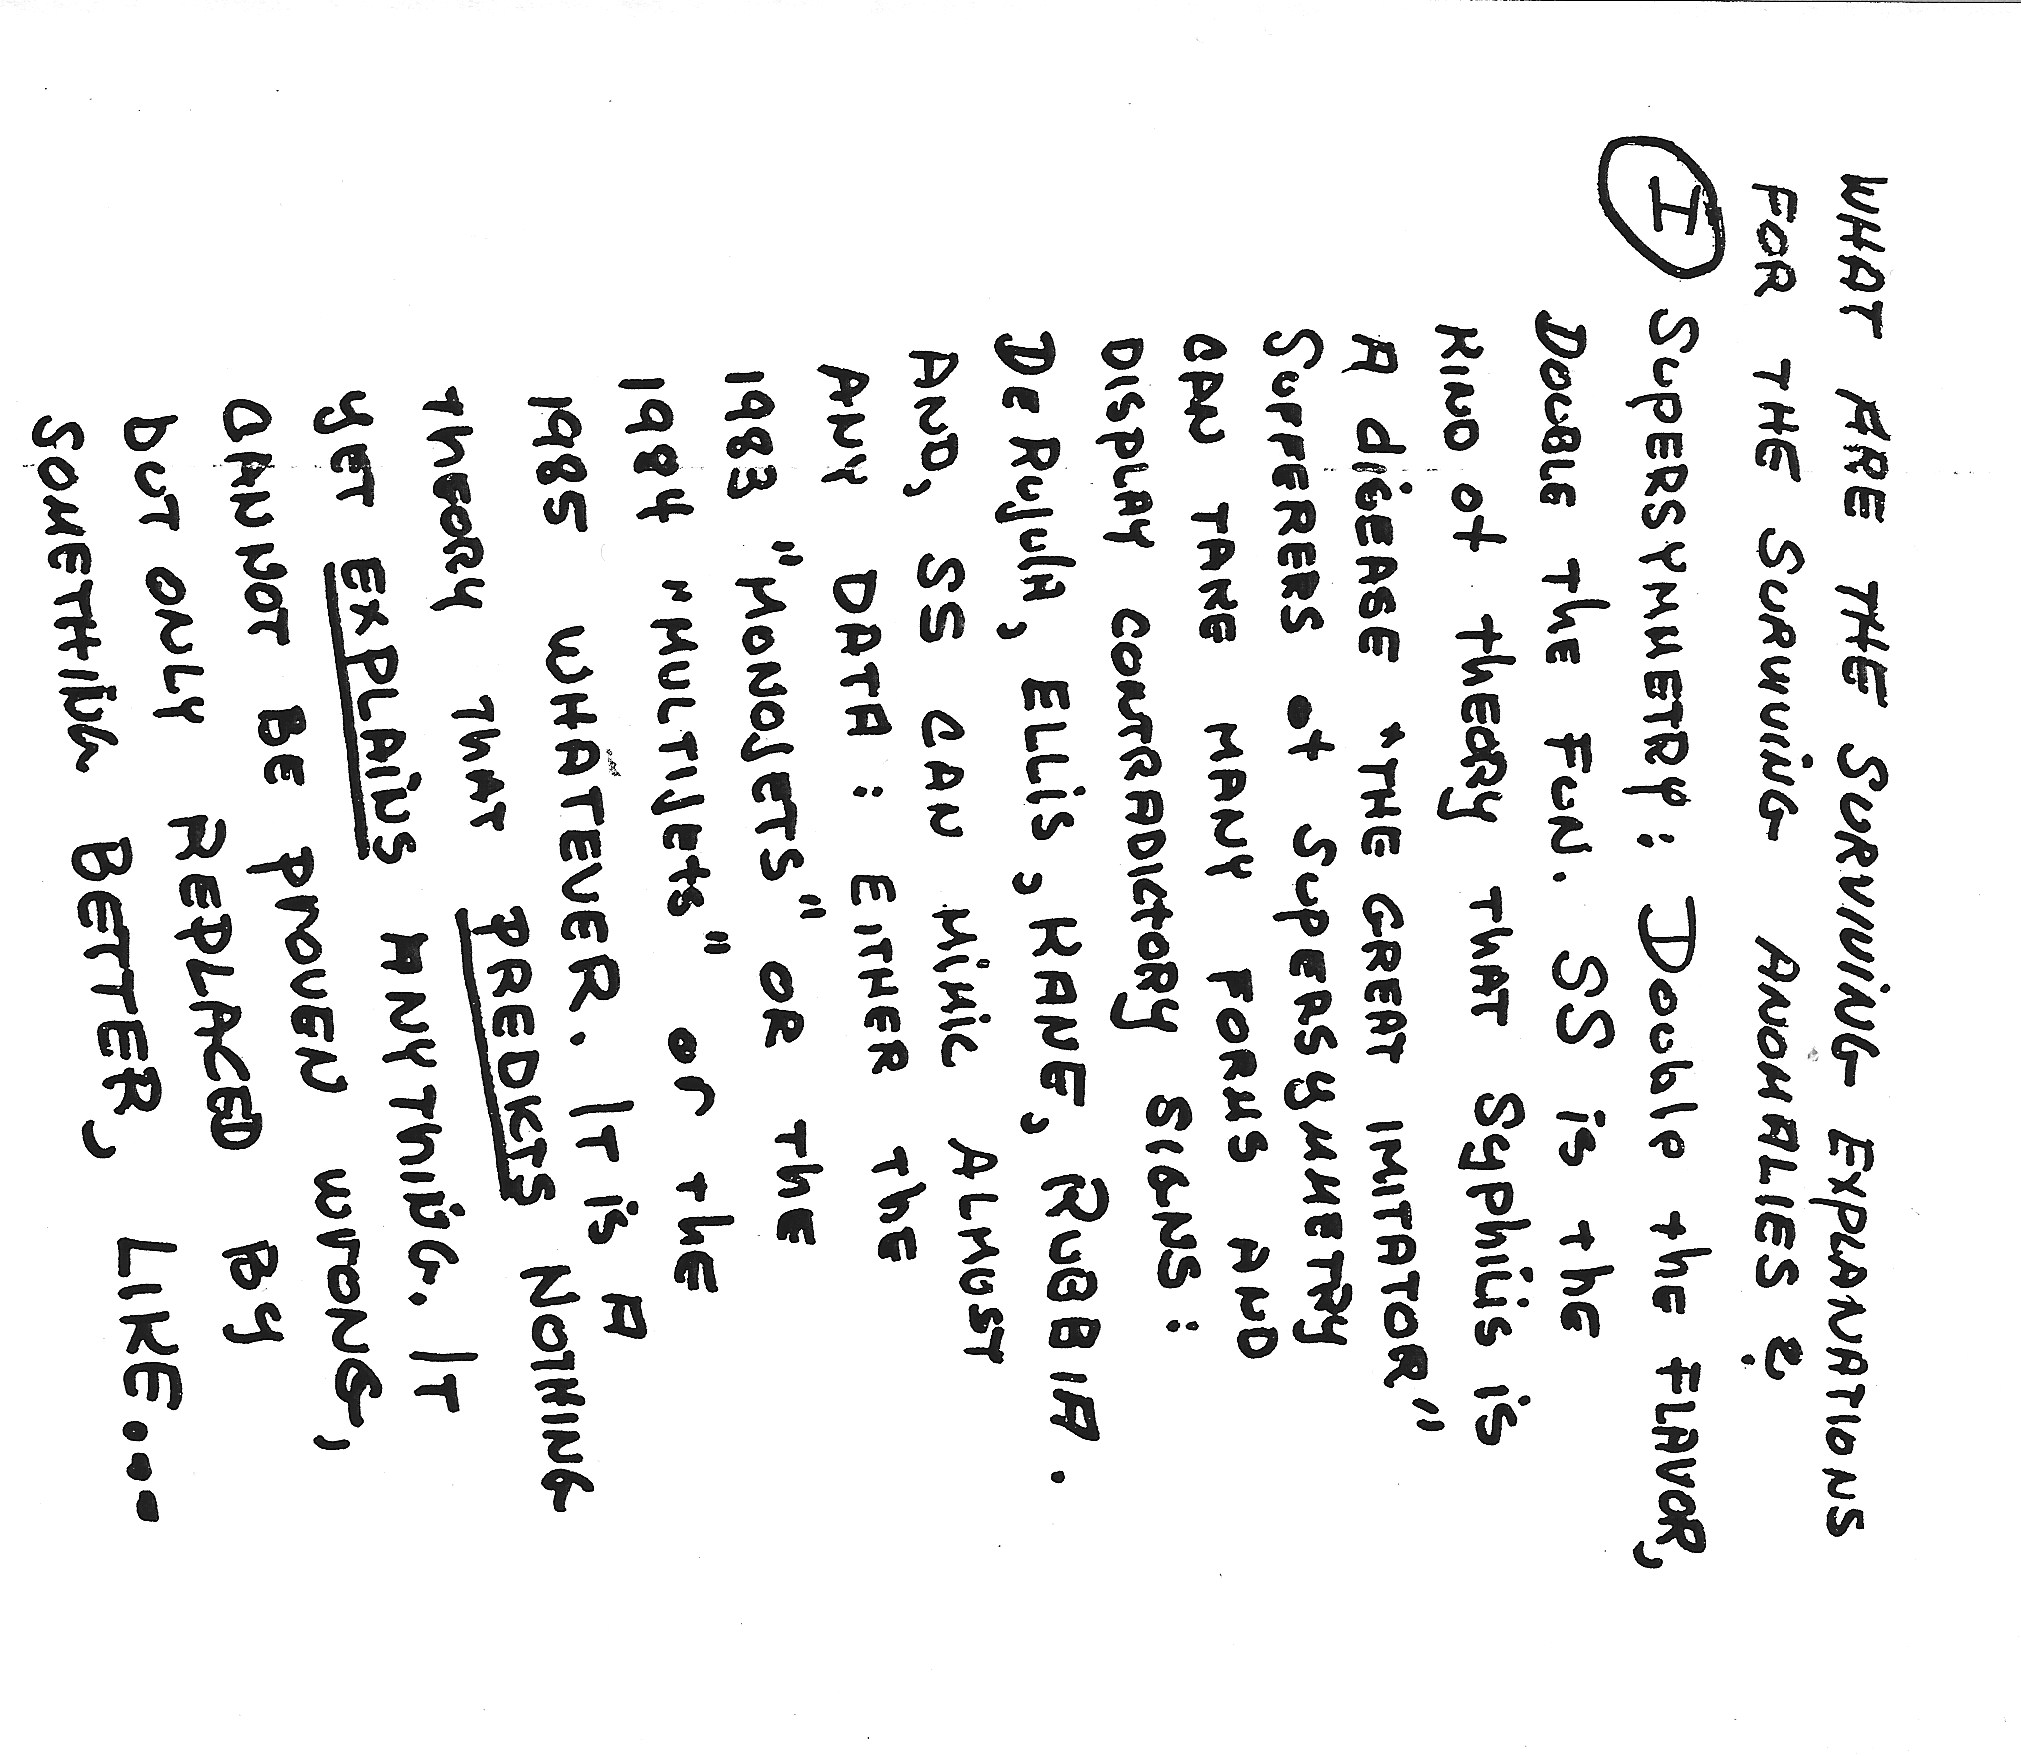 WHAT ARE THE SURVIVING EXPLANATIONS
FOR THE SURVIVING ANOMALIES?
I SUPERSYMMETRY: Double the FLAVOR,
DOUBLE THE FUN. SS is the
KIND of theory THAT Syphilis is
A disease "THE GREAT IMITATOR"
SUFFERERS of SUPERSYMMETRY
CAN TAKE MANY FORMS AND
DISPLAY CONTRADICTORY SIGNS:
De Rujula, ELLIS, KANE, RUBBIA.
AND, SS CAN MIMIC ALMOST
ANY DATA: EITHER THE
1983 "MONOJETS" OR THE
1984 "MULTIJETS" or the
1985 WHATEVER. IT is A
theory THAT PREDICTS NOTHING
yET EXPLAINS ANYTHING. IT
CANNOT BE proven wrong,
but only REPLACED By
SOMETHING BETTER, LIKE...